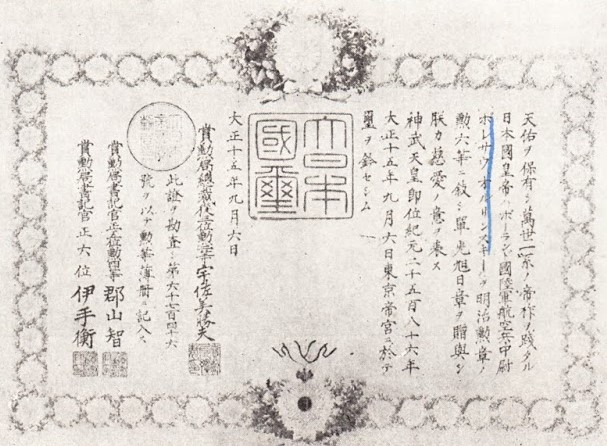 天佑ヲ保有シ萬世一系ノ帝祚ヲ踐タル
日本國皇帝ハポーランド國陸軍航空兵中尉
ボレサウオルリンスキーヲ明治勲章ノ
勲六等ニ敍シ單光旭日章ヲ贈與シ
朕カ慈愛ノ意ヲ表ス
神武天皇即位紀元二千五百八十六年
大正十五年九月六日東京帝宮ニ於テ
璽ヲ鈐セシム
大日本
國璽
大正十五年九月六日
賞勲局總裁 宇佐美勝夫
此證ヲ勘査シ第六千七百四十六
號ヲ以テ勲等簿冊ニ記入ス
賞勲局書記官正五位勲四等 郡山智
賞勲局書記官正六位 伊手衡